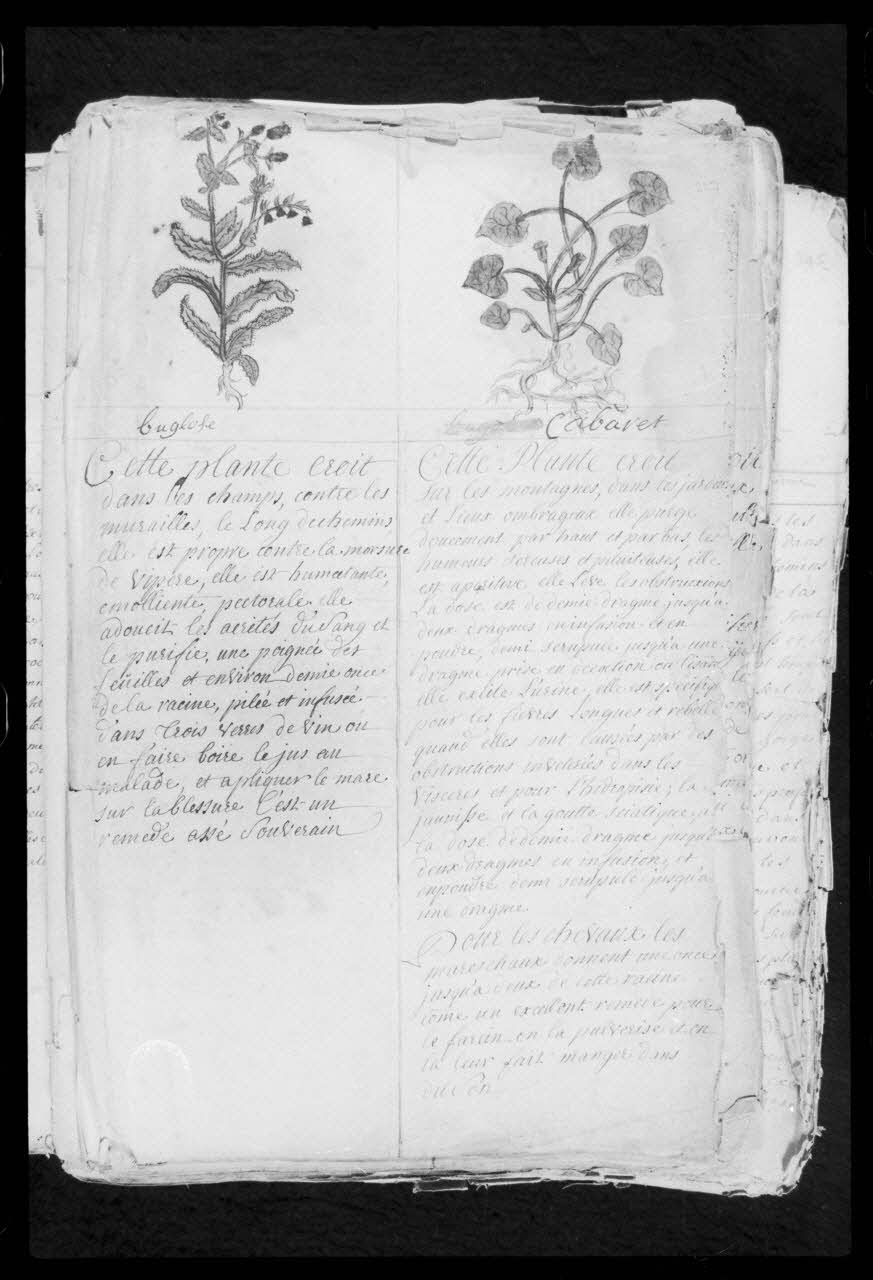 buglose
Cette plante croit
dans les champs, contre les
murailles, le Long des chemins
elle est propre contre la morsure
de vipere, elle est humectante,
emolliente, pectorale elle
adoucit les acrités du Sang et
le purifie, une poignée des
feüilles et environ demie once
de la racine, pilée et infusée
dans trois verres de vin ou
en faire boire le jus au
malade, et apliquer le marc
sur la blessure C'est un
remede assé Souverain
Cabaret
Cette Plante croit
sur les montagnes, dans les jardeaux
et Lieux ombrageux elle purge
doucement par haut et par bas, les
humeurs sereuses et pituiteuses, elle
est aperitive elle Leve les obstruxions
La dose est de demie dragme jusqu'a
deux dragmes en infusion et en
poudre, demi scrupule jusqu'a une
dragme prise en decoction ou tisane
elle exite L'urine, elle est specifique
pour les fievres Longues et rebelle
quand elles sont causées par des
obstructions inveterées dans les
visceres et pour l'hidropisie, la
jaunisse et la goutte sciatique,
la dose de demie dragme jusqu'a
deux dragmes en infusion, et
en poudre demi scrupule jusqu'a
une dragme
Pour les chevaux les
mareschaux donnent une once
jusqu'a deux de cette racine
come un excelent remede pour
le farcin on la pulverise et on
la leur fait manger dans
du Son